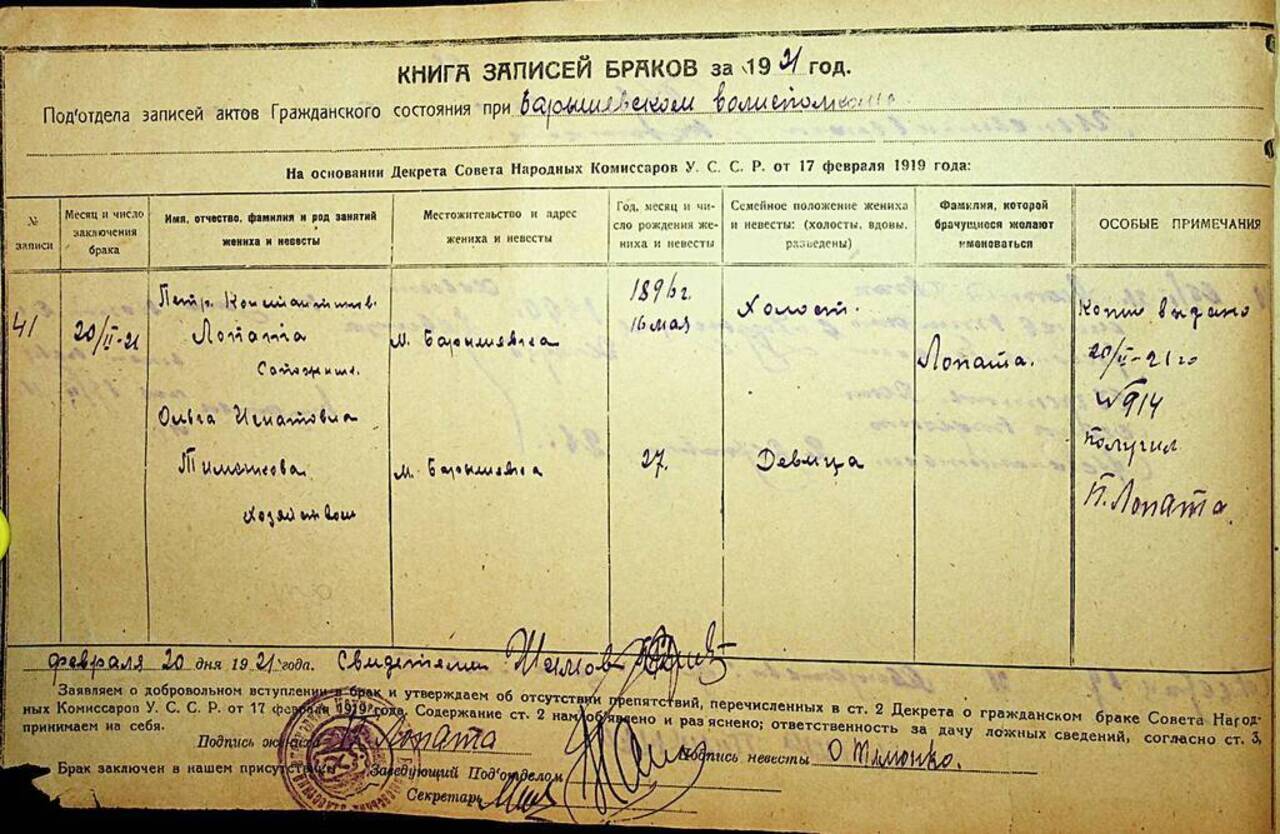 КНИГА ЗАПИСЕЙ БРАКОВ за 1921 год.
Под'отдела записей актов Гражданского состояния при Барышевском волисполкоме
На основании Декрета Совета Народных Комиссаров У. С. С. Р. от 17 февраля 1919 года:
№ записи
Месяц и число заключения брака
Имя, отчество, фамилия и род занятий жениха и невесты
Местожительство и адрес жениха и невесты
Год, месяц и число рождения жениха и невесты
Семейное положение жениха и невесты: (холосты, вдовы, разведены)
Фамилия, которой брачущиеся желают именоваться
ОСОБЫЕ ПРИМЕЧАНИЯ
41
20/II-21
Петр Константинов.
Лопата
Сапожник.
м. Барышевка
1896 г.
16 мая
Холост.
Лопата.
Копию выдано
20/II-21 го
№ 914
Получил
П. Лопата.
Ольга Игнатовна
Тимошкова
хозяйством
м. Барышевка
27.
Девица
Февраля 20 дня 1921 года. Свидетели
Заявляем о добровольном вступлении в брак и утверждаем об отсутствии препятствий, перечисленных в ст. 2 Декрета о гражданском браке Совета Народ-
ных Комиссаров У. С. С. Р. от 17 февраля 1919 года. Содержание ст. 2 нам объявлено и раз'яснено; ответственность за дачу ложных сведений, согласно ст. 3,
принимаем на себя.
Подпись жениха Лопата
Подпись невесты О Тимошко.
Брак заключен в нашем присутствии: Заведующий Под'отделом
Секретарь